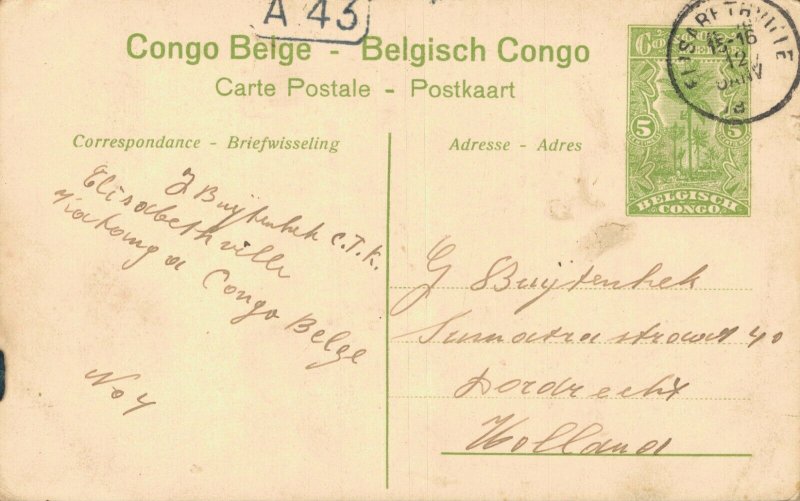 A 43
Congo Belge - Belgisch Congo
Carte Postale - Postkaart
Correspondance - Briefwisseling
J Buijtenhek C.T.K.
Elisabethville
Katanga
Congo Belge
No 4
ELISABETHVILLE
15-16
12
JANV
5 5
BELGISCH
CONGO
Adresse - Adres
G Buijtenhek
Sumatrastraat 40
Dordrecht
Holland